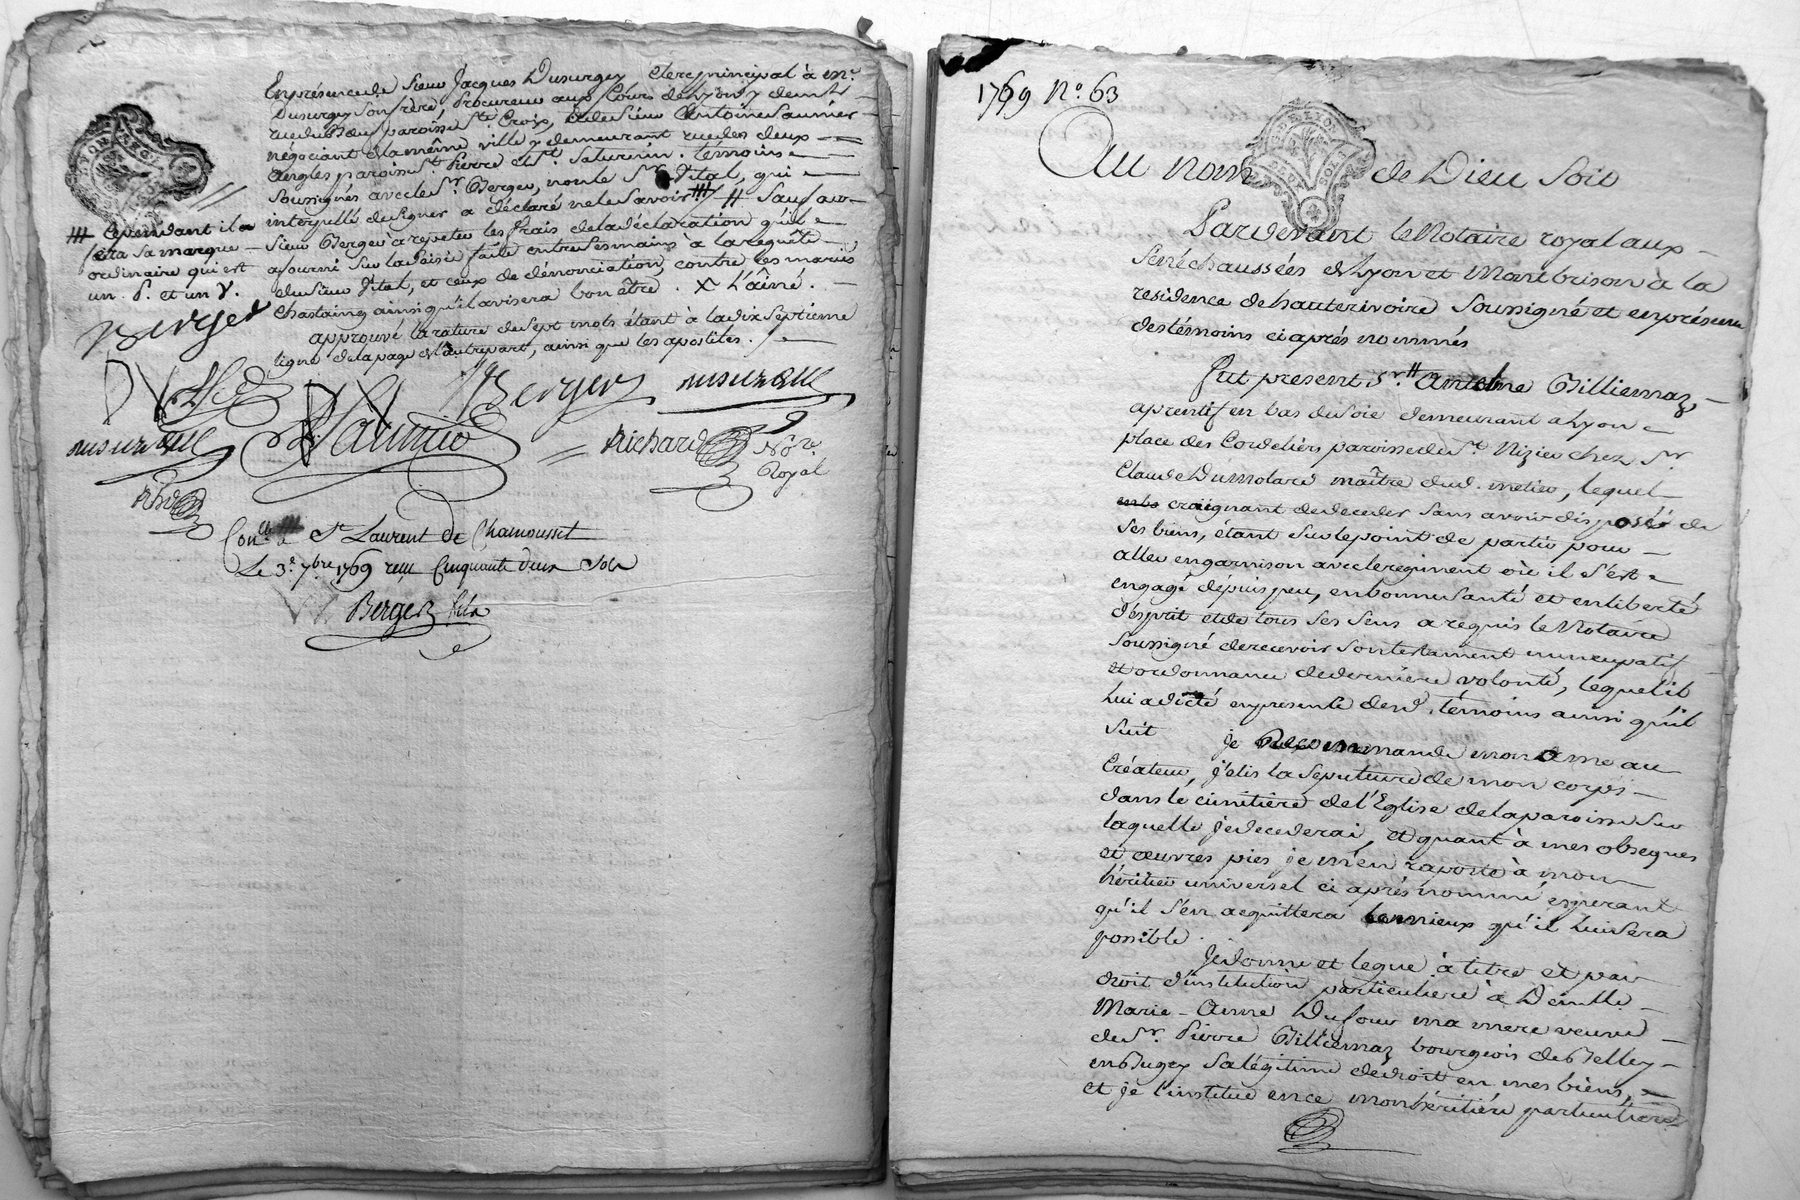 En présence de Sieur Jacques Dusurgey, clerc principal à me.
Dusurgey son frère, Procureur aux Cours de Lyon, y demt.
rue du Bœuf paroisse Ste. Croix, et de Sieur Antoine Saunier
négociant de la même ville y demeurant rue des deux
angles paroisse St. Pierre et St. Saturnin. témoins
soussignés avec le Sr. Berger, non le Sr. Vital, qui
interpellé de signer a déclaré ne le savoir # // Sauf au
Sieur Berger à repeter les frais de la déclaration qu'il
a fourni sur la saisie faite entre ses mains à la requête
du Sieur Vital, et ceux de dénonciation, contre les mariés
Chastaing ainsi qu'il avisera bon être. X L'aîné.
approuvé la rature de sept mots étant à la dix septieme
ligne de la page de l'autre part, ainsi que les apostilles.
# Cependant il a
fait sa marque
ordinaire qui est
un P. et un V.
Berger
PV
Berger
Dusurgey
Saunier
Richard Nore.
Royal
Conllé. a St Laurent de Chamousset
Le 3e. 7bre 1769 reçu Cinquante deux Sols
Berger fils
1769 No. 63
Au nom de Dieu soit
LYON
Pardevant le Notaire royal aux
Sénéchaussées de Lyon et Montbrison à la
residence de hauterivoire soussigné et en présence
des témoins ci après nommés
fut présent Sr. // Antelme Billiemaz,
aprentif en bas de soie demeurant a Lyon
place des Cordeliers paroisse de St. Nizier chez Sr.
Claude Dumolard maître dud. metier, lequel
craignant de deceder sans avoir disposé de
ses biens, étant sur le point de partir pour
aller en garnison avec le regiment où il s'est
engagé dépuis peu, en bonne santé et en liberté
d'esprit et de tous ses sens a requis le Notaire
soussigné de recevoir son testament nuncupatif
et ordonnance de derniére volonté, lequel il
lui a dicté en presence desd. témoins ainsi qu'il
suit je Recommande mon ame au
Créateur, j'élis la sepulture de mon corps
dans le cimitière de l'Eglise de la paroisse sur
laquelle je decederai, et quant à mes obseques
et œuvres pies je m'en raporte à mon
héritier universel ci après nommé esperant
qu'il s'en acquittera le mieux qu'il lui sera
possible.
Je donne et legue à titre et par
droit d'institution particuliere à Demlle.
Marie-Anne Dufour ma mere veuve
de Sr. Pierre Billiemaz bourgeois de Belley
en Bugey sa légitime de droit en mes biens,
et je l'institue en ce mon héritiére particuliere